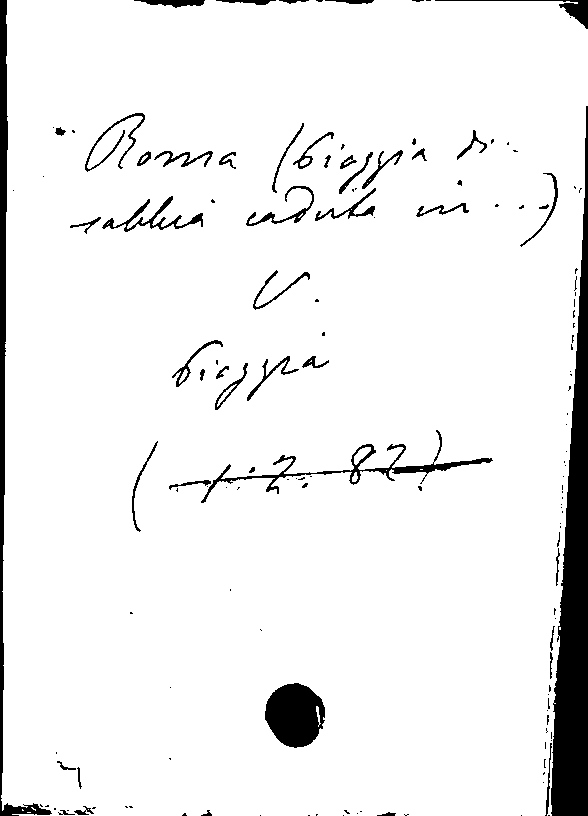 Roma (Pioggia di
sabbia caduta in ...)
V.
Pioggia
(1.2.82)